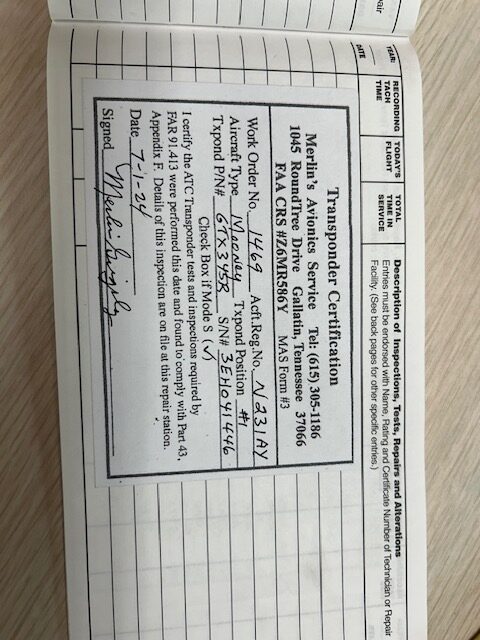 YEAR:
DATE
RECORDING TACH TIME
TODAY'S FLIGHT
TOTAL TIME IN SERVICE
Description of Inspections, Tests, Repairs and Alterations
Entries must be endorsed with Name, Rating and Certificate Number of Technician or Repair
Facility. (See back pages for other specific entries.)
Transponder Certification
Merlin's Avionics Service Tel: (615) 305-1186
1045 RoundTree Drive Gallatin, Tennessee 37066
FAA CRS #Z6MR586Y MAS Form #3
Work Order No. 1469 Acft.Reg.No. N231AY
Aircraft Type Mooney Txpond Position #1
Txpond P/N# GTX345R S/N# 3EH041446
Check Box if Mode S (✓)
I certify the ATC Transponder tests and inspections required by
FAR 91.413 were performed this date and found to comply with Part 43,
Appendix F. Details of this inspection are on file at this repair station.
Date 7-1-24
Signed Merlin